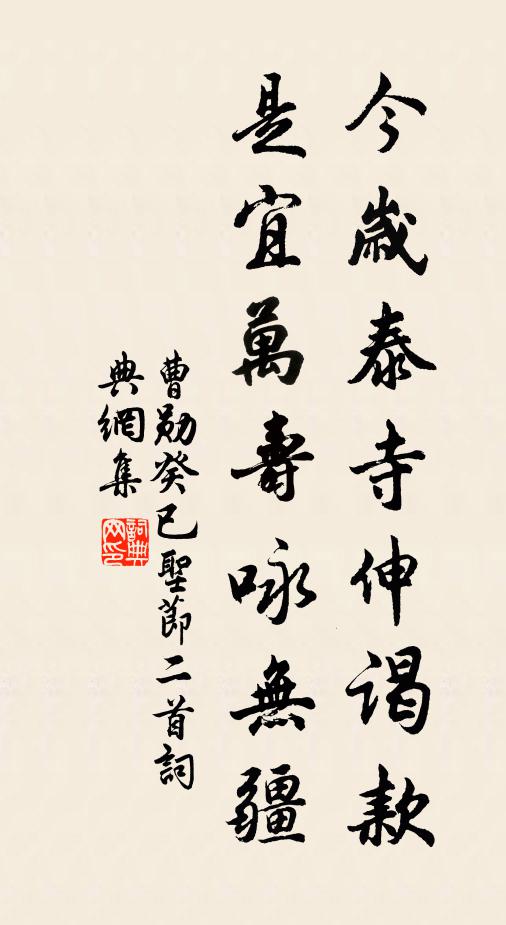 今歲泰寺伸謁款
是宜萬壽咏無疆
曹勛癸巳聖節二首詞
典網集
詞典网印